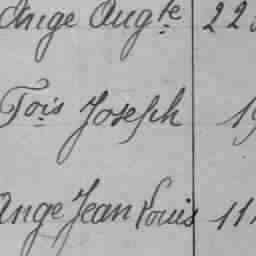 Ange Aug.te 22
Fois Joseph 19
Ange Jean Louis 11